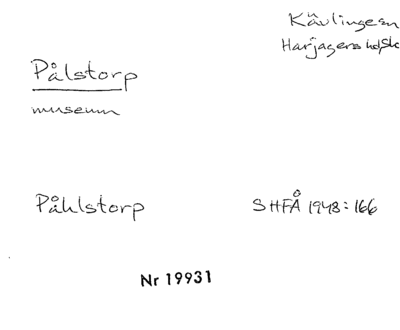 Kävlinge sn
Harjagers hd Sk
Pålstorp
museum
Påhlstorp
SHFÅ 1948:166
Nr 19931